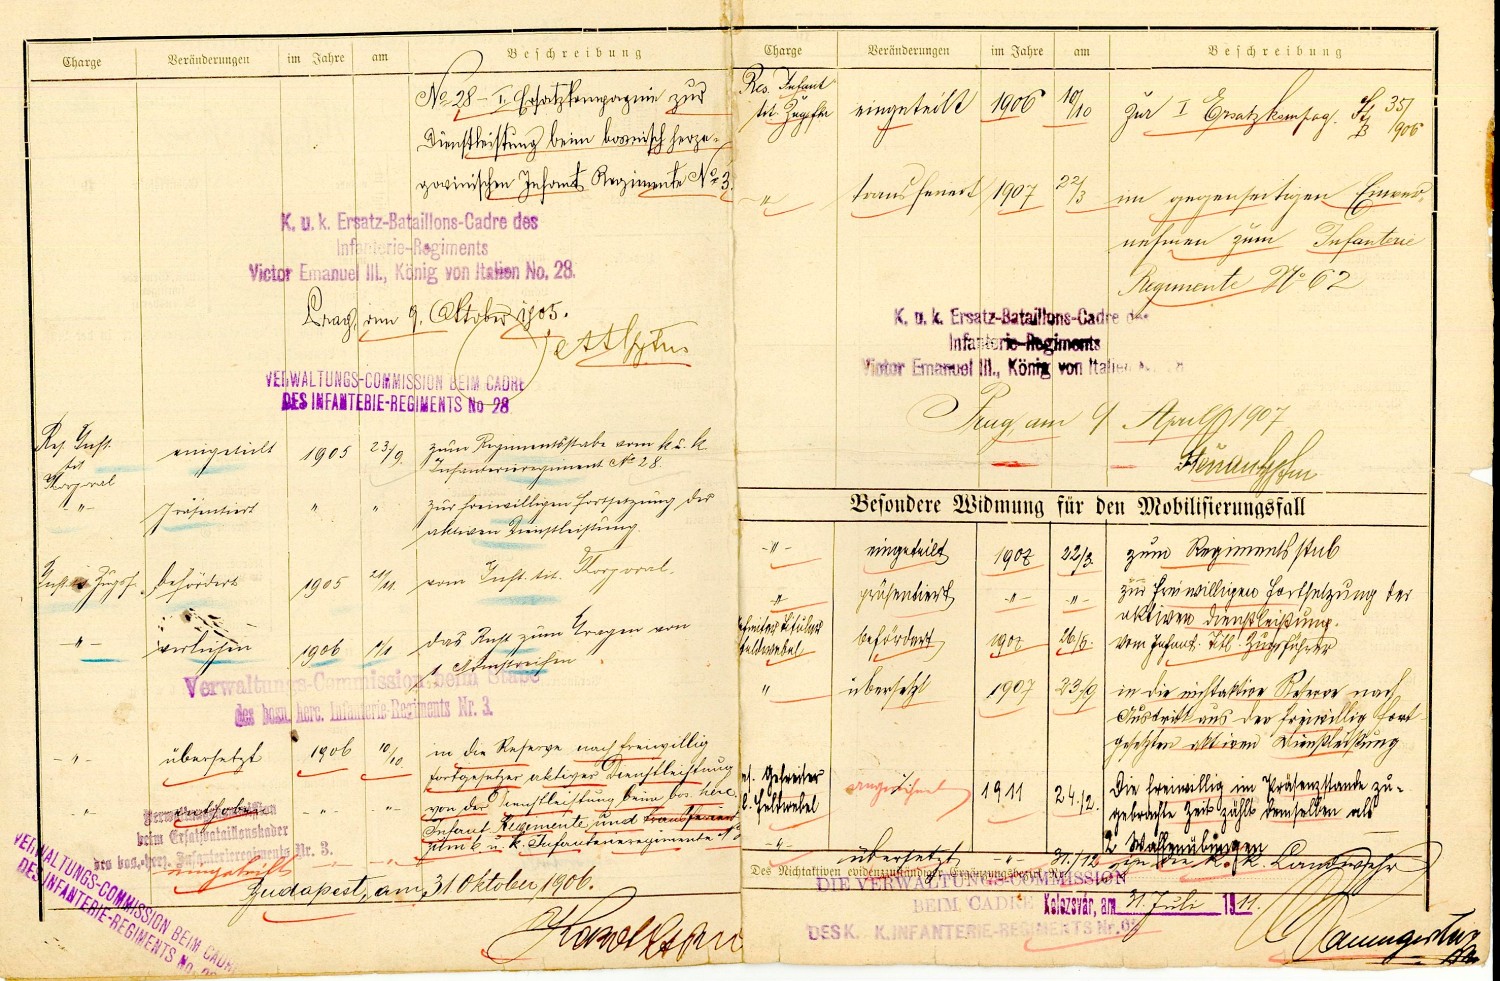 Charge Veränderungen im Jahre am Beschreibung
No 28 – I. Ersatzkompagnie zur
Dienstleistung beim bosnisch herze-
govinischen Infant. Regimente No 3.
K. u. k. Ersatz-Bataillons-Cadre des
Infanterie-Regiments
Victor Emanuel III., König von Italien No. 28.
Prag, am 9. Oktober 1905.
VERWALTUNGS-COMMISSION BEIM CADRE
DES INFANTERIE-REGIMENTS No 28
Res. Inft.
tit.
Korporal
eingeteilt 1905 23/9. zum Regimentsstabe vom k. u. k.
Infanterieregiment No 28.
-"- präsentiert " " zur freiwilligen Fortsetzung der
aktiven Dienstleistung.
Inft. Zugsf. befördert 1905 vom Inft. tit. Korporal.
-"- verliehen 1906 das Recht zum Tragen von
Verwaltungs-Commission beim Stabe
des bosn. herc. Infanterie-Regiments Nr. 3.
-"- übersetzt 1906 10/10 in die Reserve nach freiwillig
fortgesetzter aktiver Dienstleistung
" enthoben -"- -"- von der Dienstleistung beim bos. herc.
Infant. Regimente und transferiert
zum k. u. k. Infanterieregimente No
Verwaltungskommission
beim Ersatzbataillonskader
des bos.-herz. Infanterieregiments Nr. 3.
Budapest, am 31 Oktober 1906.
VERWALTUNGS-COMMISSION BEIM CADRE
DES INFANTERIE-REGIMENTS No
Charge Veränderungen im Jahre am Beschreibung
Res. Infant
tit. Zugsfhr eingeteilt 1906 10/10 zur I Ersatzkompag. 35/
1906
-"- transferiert 1907 22/3 im gegenseitigen Einver-
nehmen zum Infanterie
Regimente No 62
K. u. k. Ersatz-Bataillons-Cadre des
Infanterie-Regiments
Victor Emanuel III., König von Italien
Prag, am 9 April 1907
Besondere Widmung für den Mobilisierungsfall
-"- eingeteilt 1907 22/3. zum Regimentsstab
" präsentiert -"- -"- zur freiwilligen Fortsetzung der
aktiven Dienstleistung.
Feldwebel befördert 1907 26/6. vom Infant. Titl. Zugsführer
" übersetzt 1907 23/9 in die nichtaktive Reserve nach
Austritt aus der freiwillig fort-
gesetzten aktiven Dienstleistung
Gefreiter
Feldwebel 1911 24./2. Die freiwillig im Präsenzstande zu-
gebrachte Zeit zählt demselben als
2 Waffenübungen
-"- übersetzt -"- 31./12 in die k. k. Landwehr
Des Nichtaktiven evidenzzuständiger Ergänzungsbezirk Nr.
DIE VERWALTUNGS-COMMISSION
BEIM CADRE
DES K. K. INFANTERIE-REGIMENTS Nr.
Kolozsvár, am 31. Juli 1911.